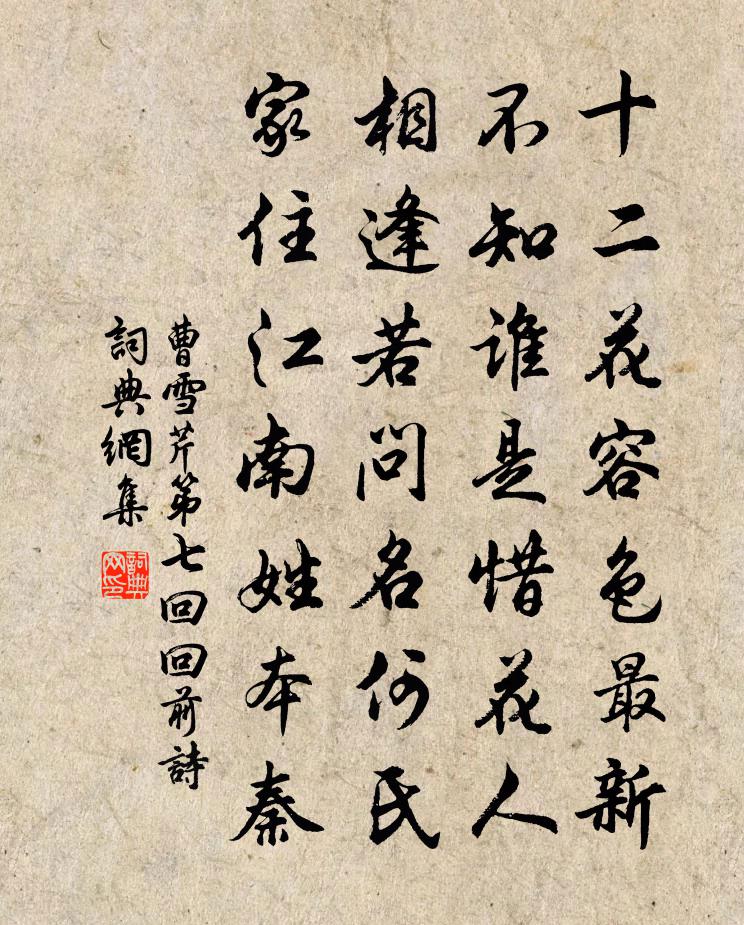 十二花容色最新
不知誰是惜花人
相逢若問名何氏
家住江南姓本秦
曹雪芹第七回回前詩
詞典網集
詞典
网印